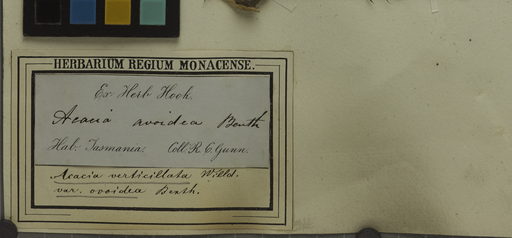 HERBARIUM REGIUM MONACENSE.
Ex Herb Hook.
Acacia ovoidea Benth
Hab: Tasmania. Coll. R. C. Gunn.
Acacia verticillata Willd.
var. ovoidea Benth.